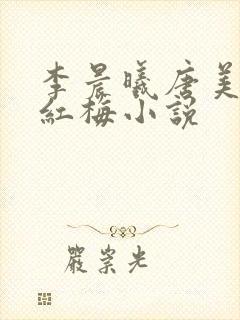 李晨曦唐美
紅梅小説
嚴崇光